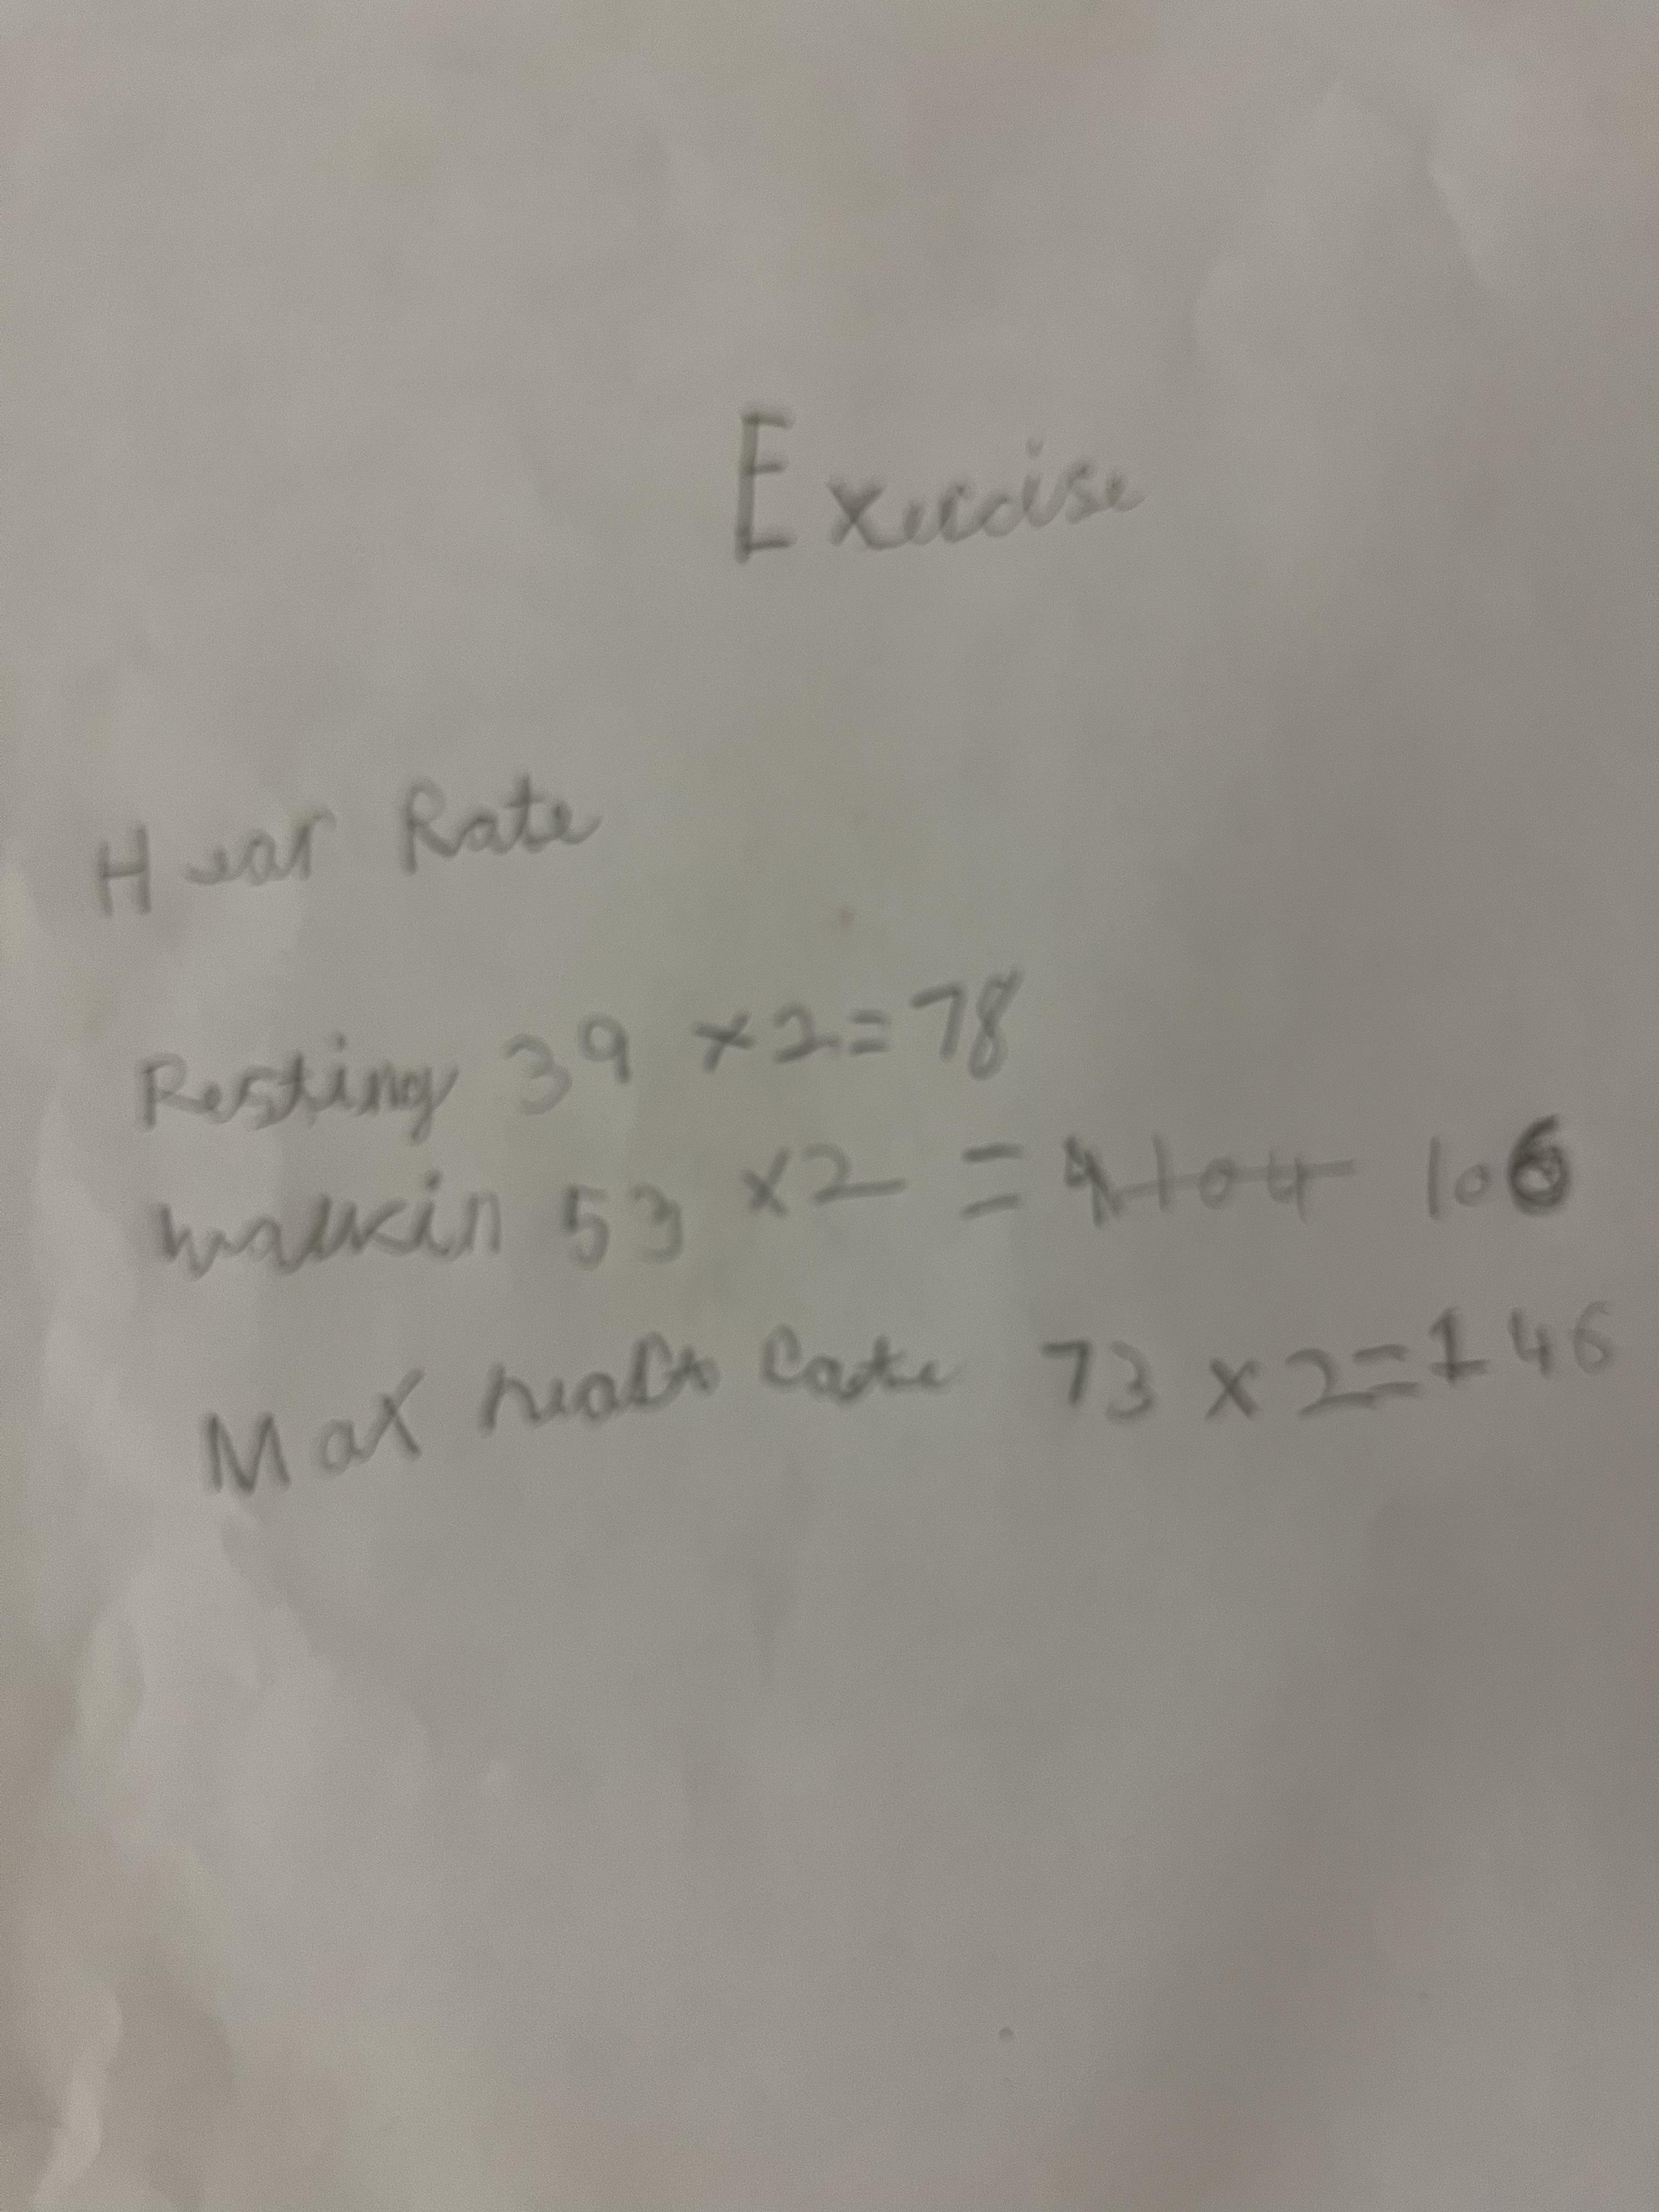 Exercise
Hear Rate
Resting 39 ×2=78
walkin 53 ×2 = 4104 106
Max heart Rate 73 ×2=146